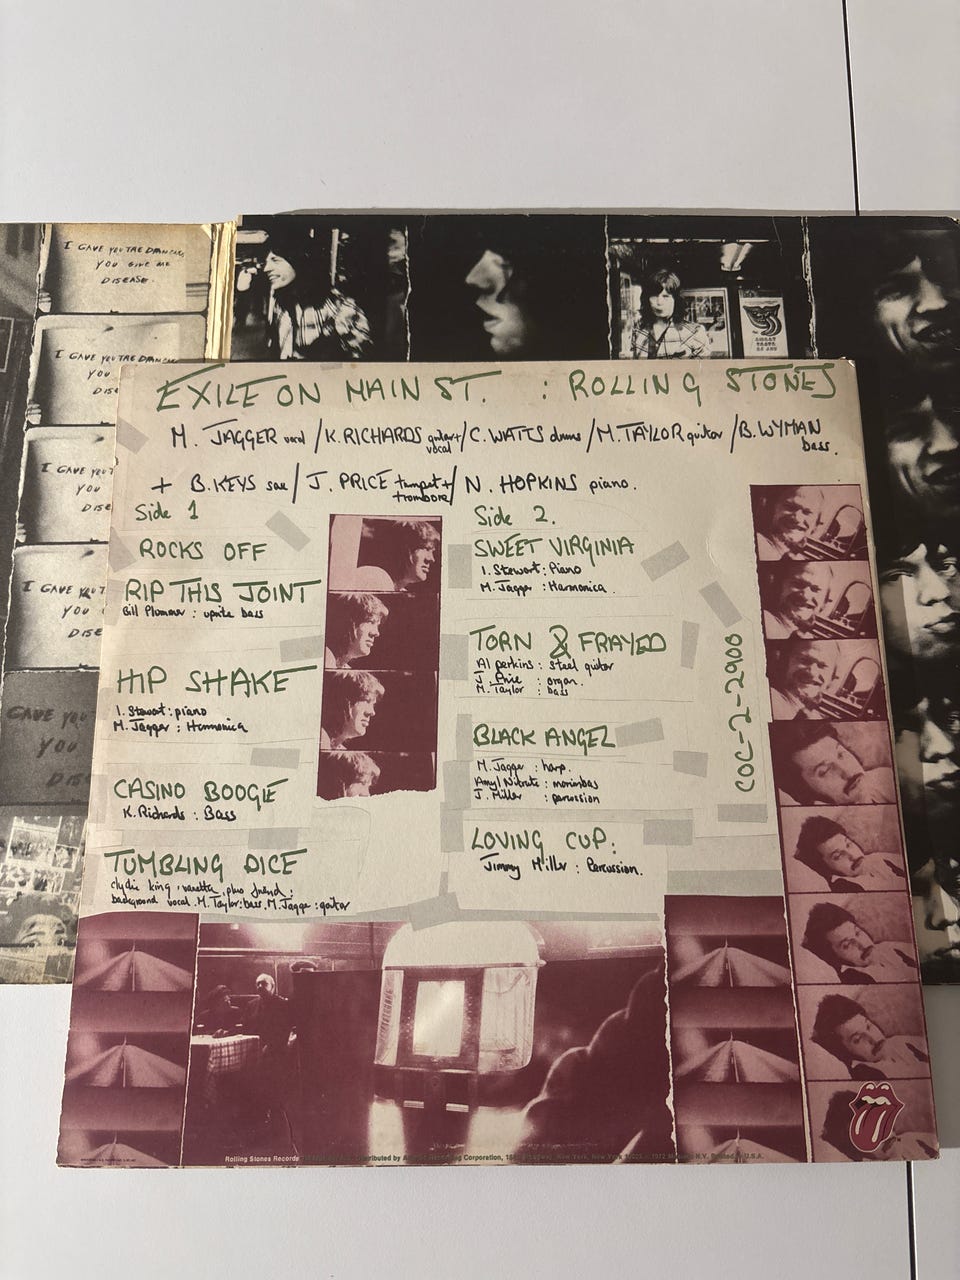 I GAVE YOU THE DIAMONDS
YOU GIVE ME
DISEASE.
I GAVE YOU THE DIAMONDS
YOU
DISE
I GAVE YOU T
YOU
DISE
I GAVE YOU T
YOU
DISE
GAVE YOU
YOU
DIS
EXILE ON MAIN ST. : ROLLING STONES
M. JAGGER vocal / K. RICHARDS guitar + vocal / C. WATTS drums / M. TAYLOR guitar / B. WYMAN bass.
+ B. KEYS sax / J. PRICE trumpet + trombone / N. HOPKINS piano.
Side 1
ROCKS OFF
RIP THIS JOINT
Bill Plummer : uprite bass
HIP SHAKE
I. Stewart : piano
M. Jagger : Harmonica
CASINO BOOGIE
K. Richards : Bass
TUMBLING DICE
clydie king, vanetta, plus friend :
background vocal. M. Taylor : bass. M. Jagger : guitar
Side 2.
SWEET VIRGINIA
I. Stewart : Piano
M. Jagger : Harmonica.
TORN & FRAYED
Al perkins : steel guitar
J. Price : organ.
M. Taylor : bass
BLACK ANGEL
M. Jagger : harp.
Amyl Nitrate : marimbas
J. Miller : percussion
LOVING CUP.
Jimmy Miller : Percussion.
COC-2-2900
Rolling Stones Records
Distributed by
Recording Corporation,
Broadway, New York, New York
1972
N.V. Printed in U.S.A.